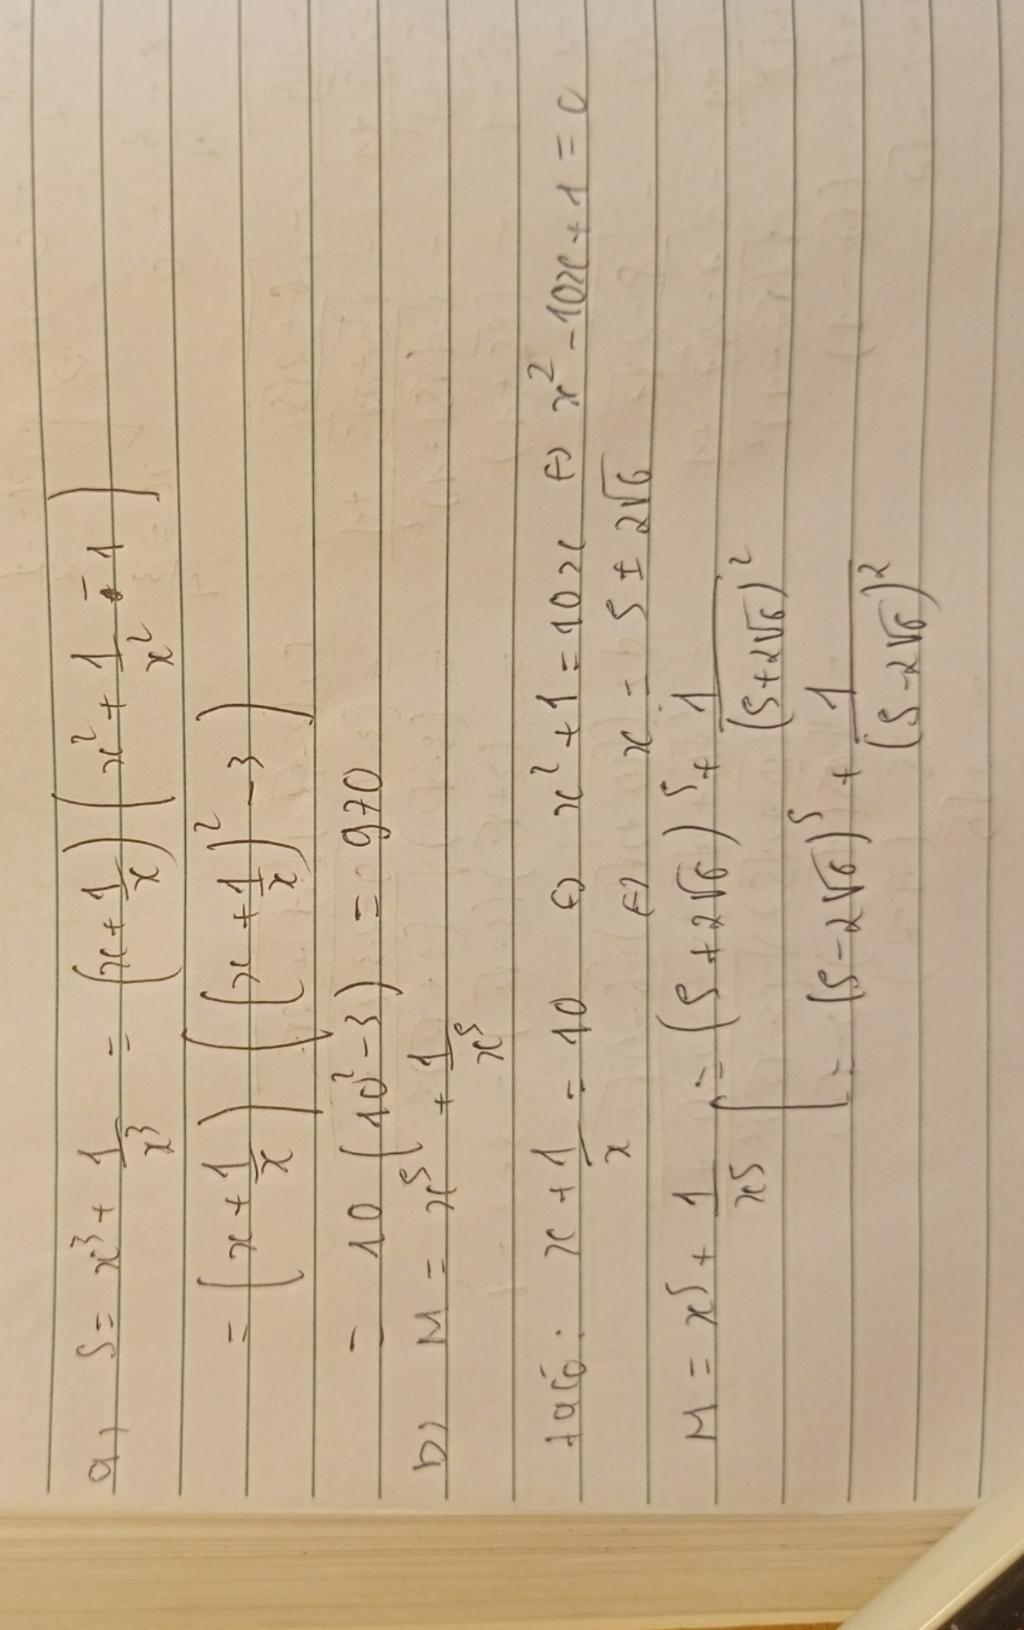 a, S = x³ + 1/x³ = (x + 1/x)(x² + 1/x² - 1)
= (x + 1/x)((x + 1/x)² - 3)
= 10(10² - 3) = 970
b, M = x⁵ + 1/x⁵
ta có: x + 1/x = 10 ⇔ x² + 1 = 10x ⇔ x² - 10x + 1 = 0
⇔ x = 5 ± 2√6
M = x⁵ + 1/x⁵ [ = (5 + 2√6)⁵ + 1/(5 + 2√6)²
= (5 - 2√6)⁵ + 1/(5 - 2√6)²